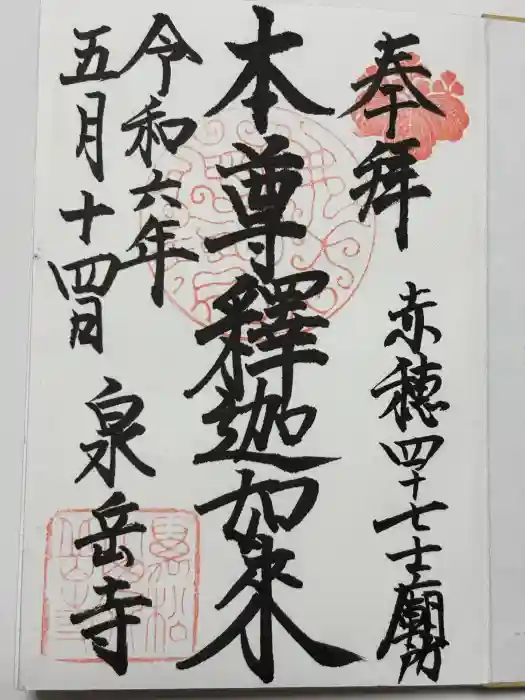 奉拜
赤穂四十七士廟所
本尊釋迦如來
令和六年
五月十四日
泉岳寺